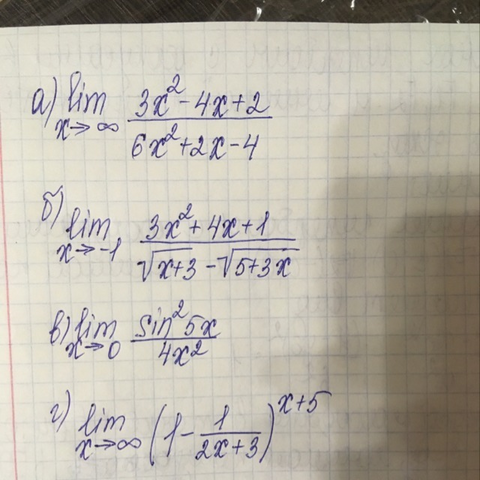 а) lim x→∞ (3x² - 4x + 2)/(6x² + 2x - 4)
б) lim x→-1 (3x² + 4x + 1)/(√(x+3) - √(5+3x))
в) lim x→0 (sin² 5x)/(4x²)
г) lim x→∞ (1 - 1/(2x+3))^(x+5)